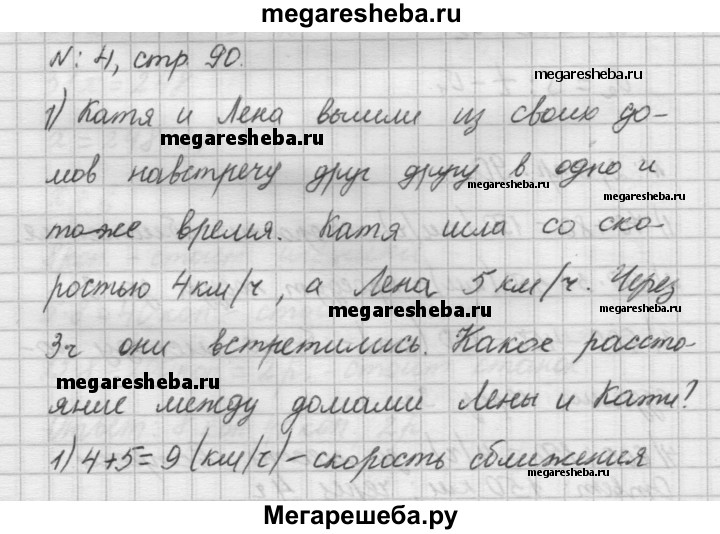 megaresheba.ru
№: 4, стр. 90.
megaresheba.ru
1) Катя и Лена вышли из своих до-
megaresheba.ru
мов навстречу друг другу в одно и
megaresheba.ru
megaresheba.ru
то же время. Катя шла со ско-
ростью 4 км/ч, а Лена 5 км/ч. Через
megaresheba.ru
megaresheba.ru
3ч они встретились. Какое рассто-
megaresheba.ru
яние между домами Лены и Кати?
1) 4+5=9 (км/ч) – скорость сближения
megaresheba.ru
Мегарешеба.ру